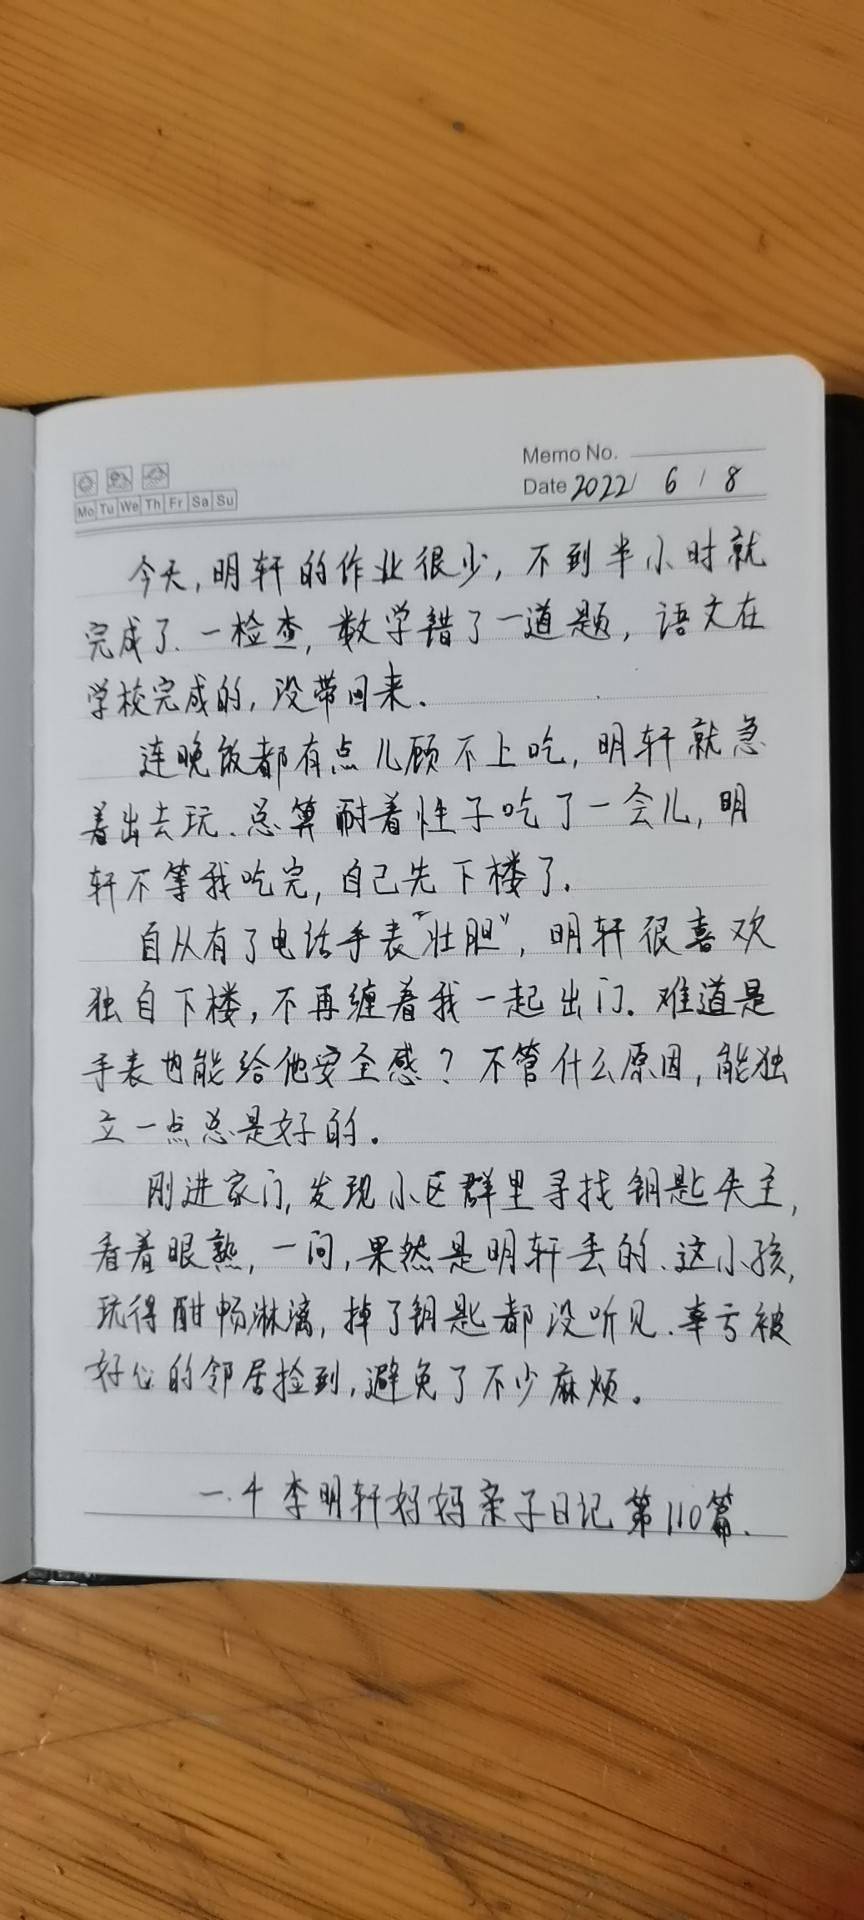 Memo No.
Mo Tu We Th Fr Sa Su
Date 2022 / 6 / 8
今天,明轩的作业很少,不到半小时就
完成了.一检查,数学错了一道题,语文在
学校完成的,没带回来.
连晚饭都有点儿顾不上吃,明轩就急
着出去玩.总算耐着性子吃了一会儿,明
轩不等我吃完,自己先下楼了.
自从有了电话手表“壮胆”,明轩很喜欢
独自下楼,不再缠着我一起出门。难道是
手表也能给他安全感?不管什么原因,能独
立一点总是好的。
刚进家门,发现小区群里寻找钥匙失主,
看着眼熟,一问,果然是明轩丢的.这小孩,
玩得酣畅淋漓,掉了钥匙都没听见.幸亏被
好心的邻居捡到,避免了不少麻烦。
一.4 李明轩妈妈亲子日记第110篇.